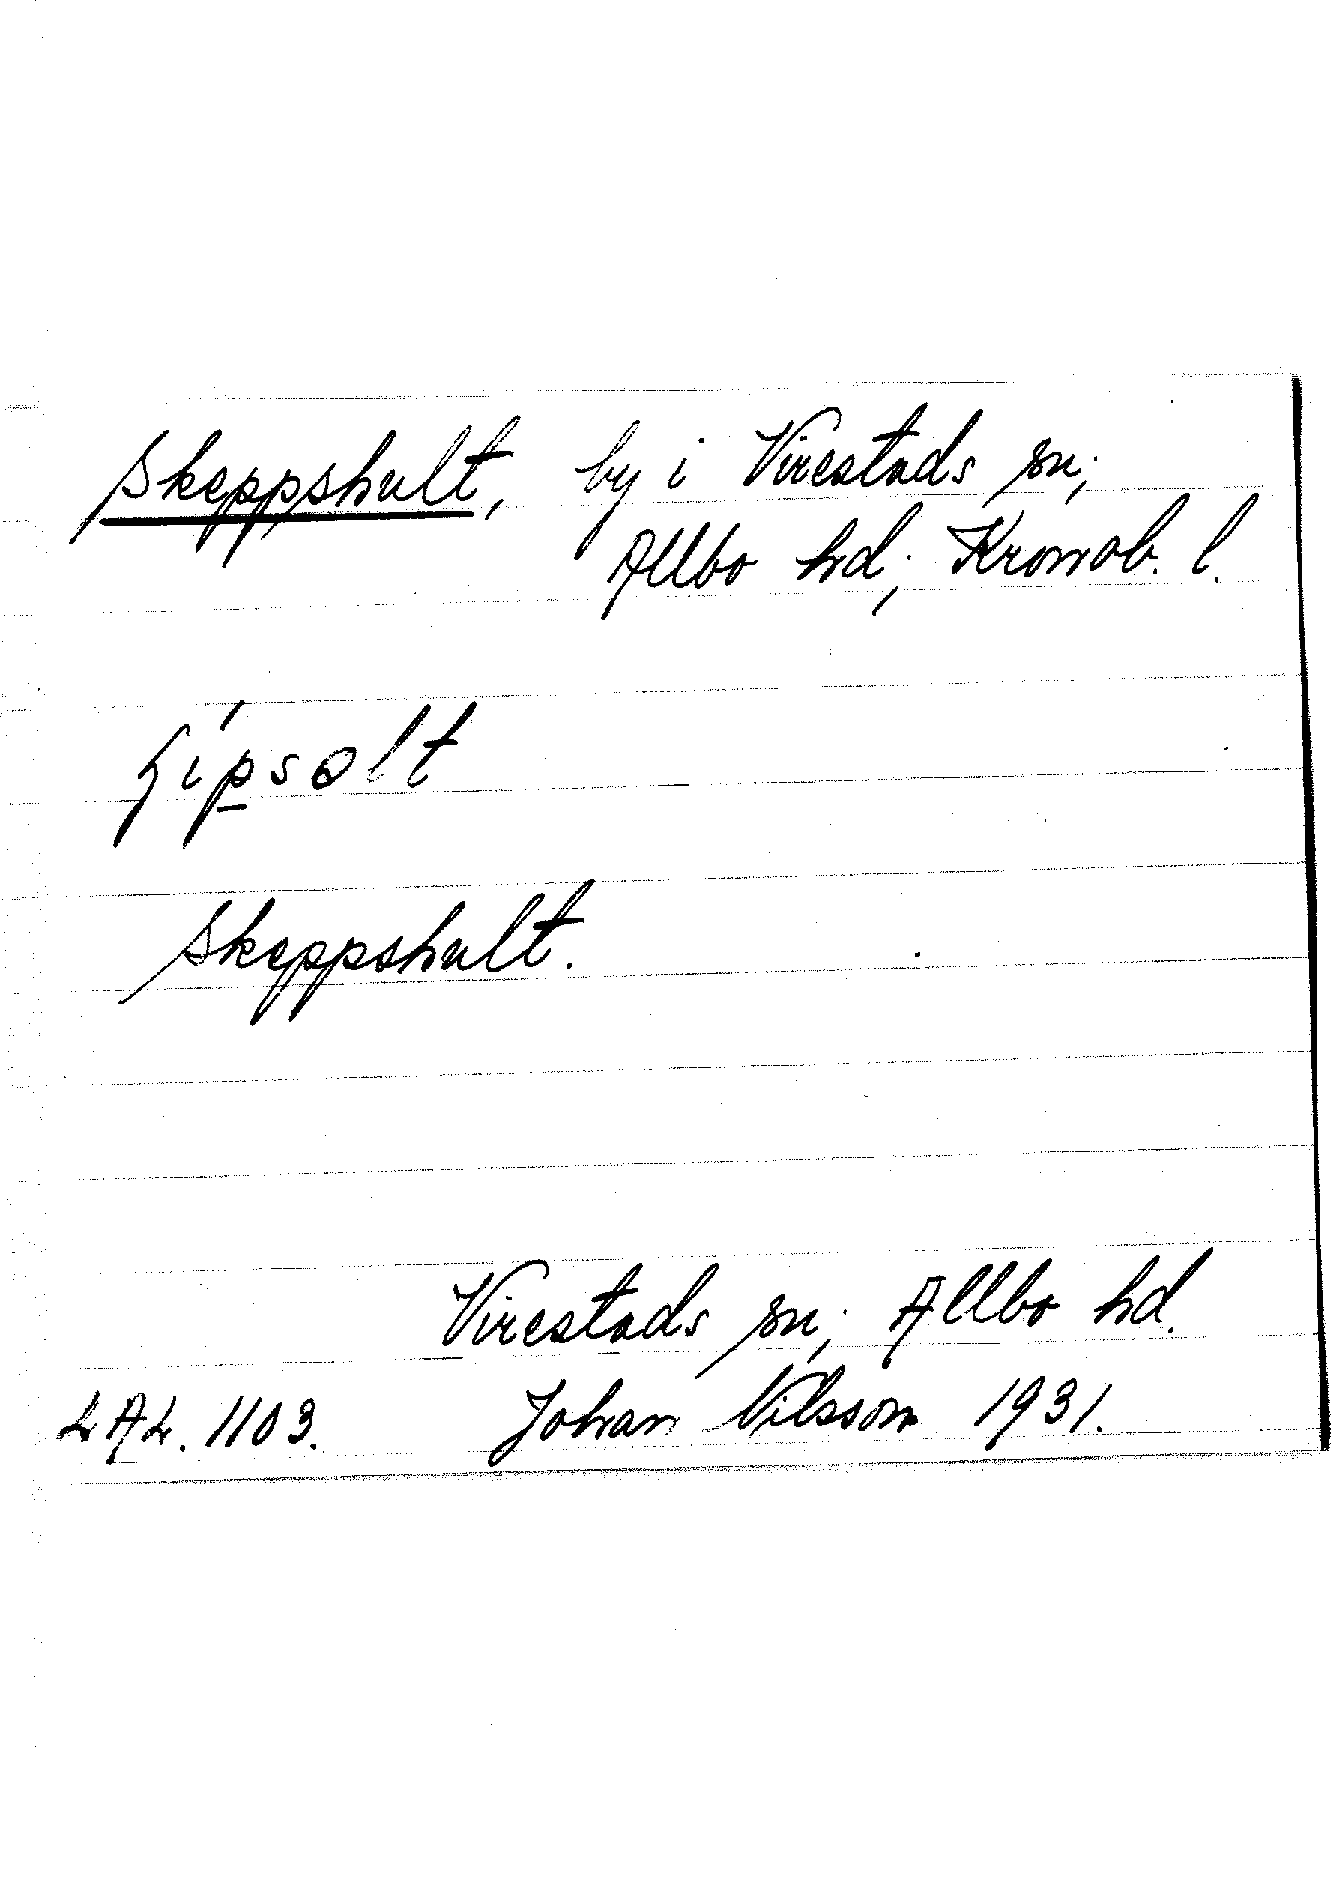 Skeppshult, by i Virestads sn;
Allbo hd; Kronob. l.
Skeppshult.
Virestads sn; Allbo hd.
LAL. 1103. Johan Nilsson 1931.